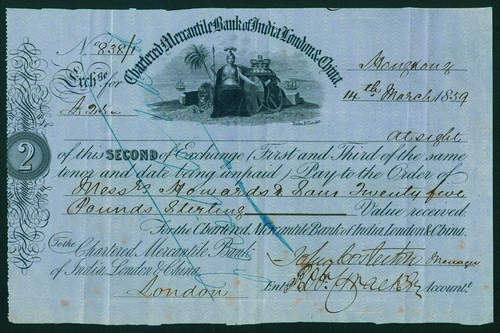 Chartered Mercantile Bank of India London & China.
No 838/1
Exchse. for
Hongkong
14th March 1859
£25-
at sight
2
of this SECOND of Exchange (First and Third of the same
tenor and date being unpaid) Pay to the Order of
Messrs Howards & Sons Twenty five
Pounds Sterling Value received.
For the Chartered Mercantile Bank of India, London & China.
To the
Chartered Mercantile Bank
of India London & China
London
Manager
Entd Accountt